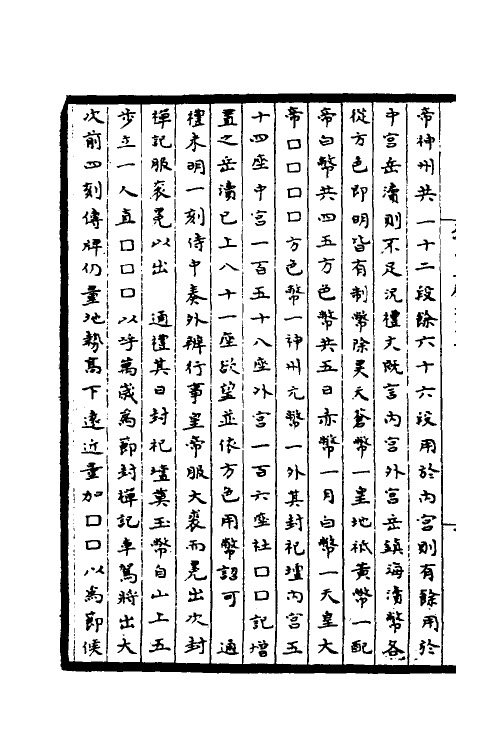 帝神州共一十二段餘六十六段用於內宮則有餘用於
中宮岳瀆則不足況禮文既言內宮外宮岳鎮海瀆幣各
從方色即明皆有制幣除昊天蒼幣一皇地祇黃幣一配
帝白幣共四五方色幣共五日赤幣一月白幣一天皇大
帝口口口口方色幣一神州元幣一外其封祀壇內宮五
十四座中宮一百五十八座外宮一百六座社口口記增
置之岳瀆已上八十一座欲望並依方色用幣詔可　通
禮未明一刻侍中奏外辨行事皇帝服大裘而冕出次封
禪記服袞冕以出　通禮其日封祀壇奠玉幣自山上五
步立一人直口口口以呼萬歲為節封禪記車駕將出大
次前四刻傳牌仍量地勢高下遠近量加口口以為節候